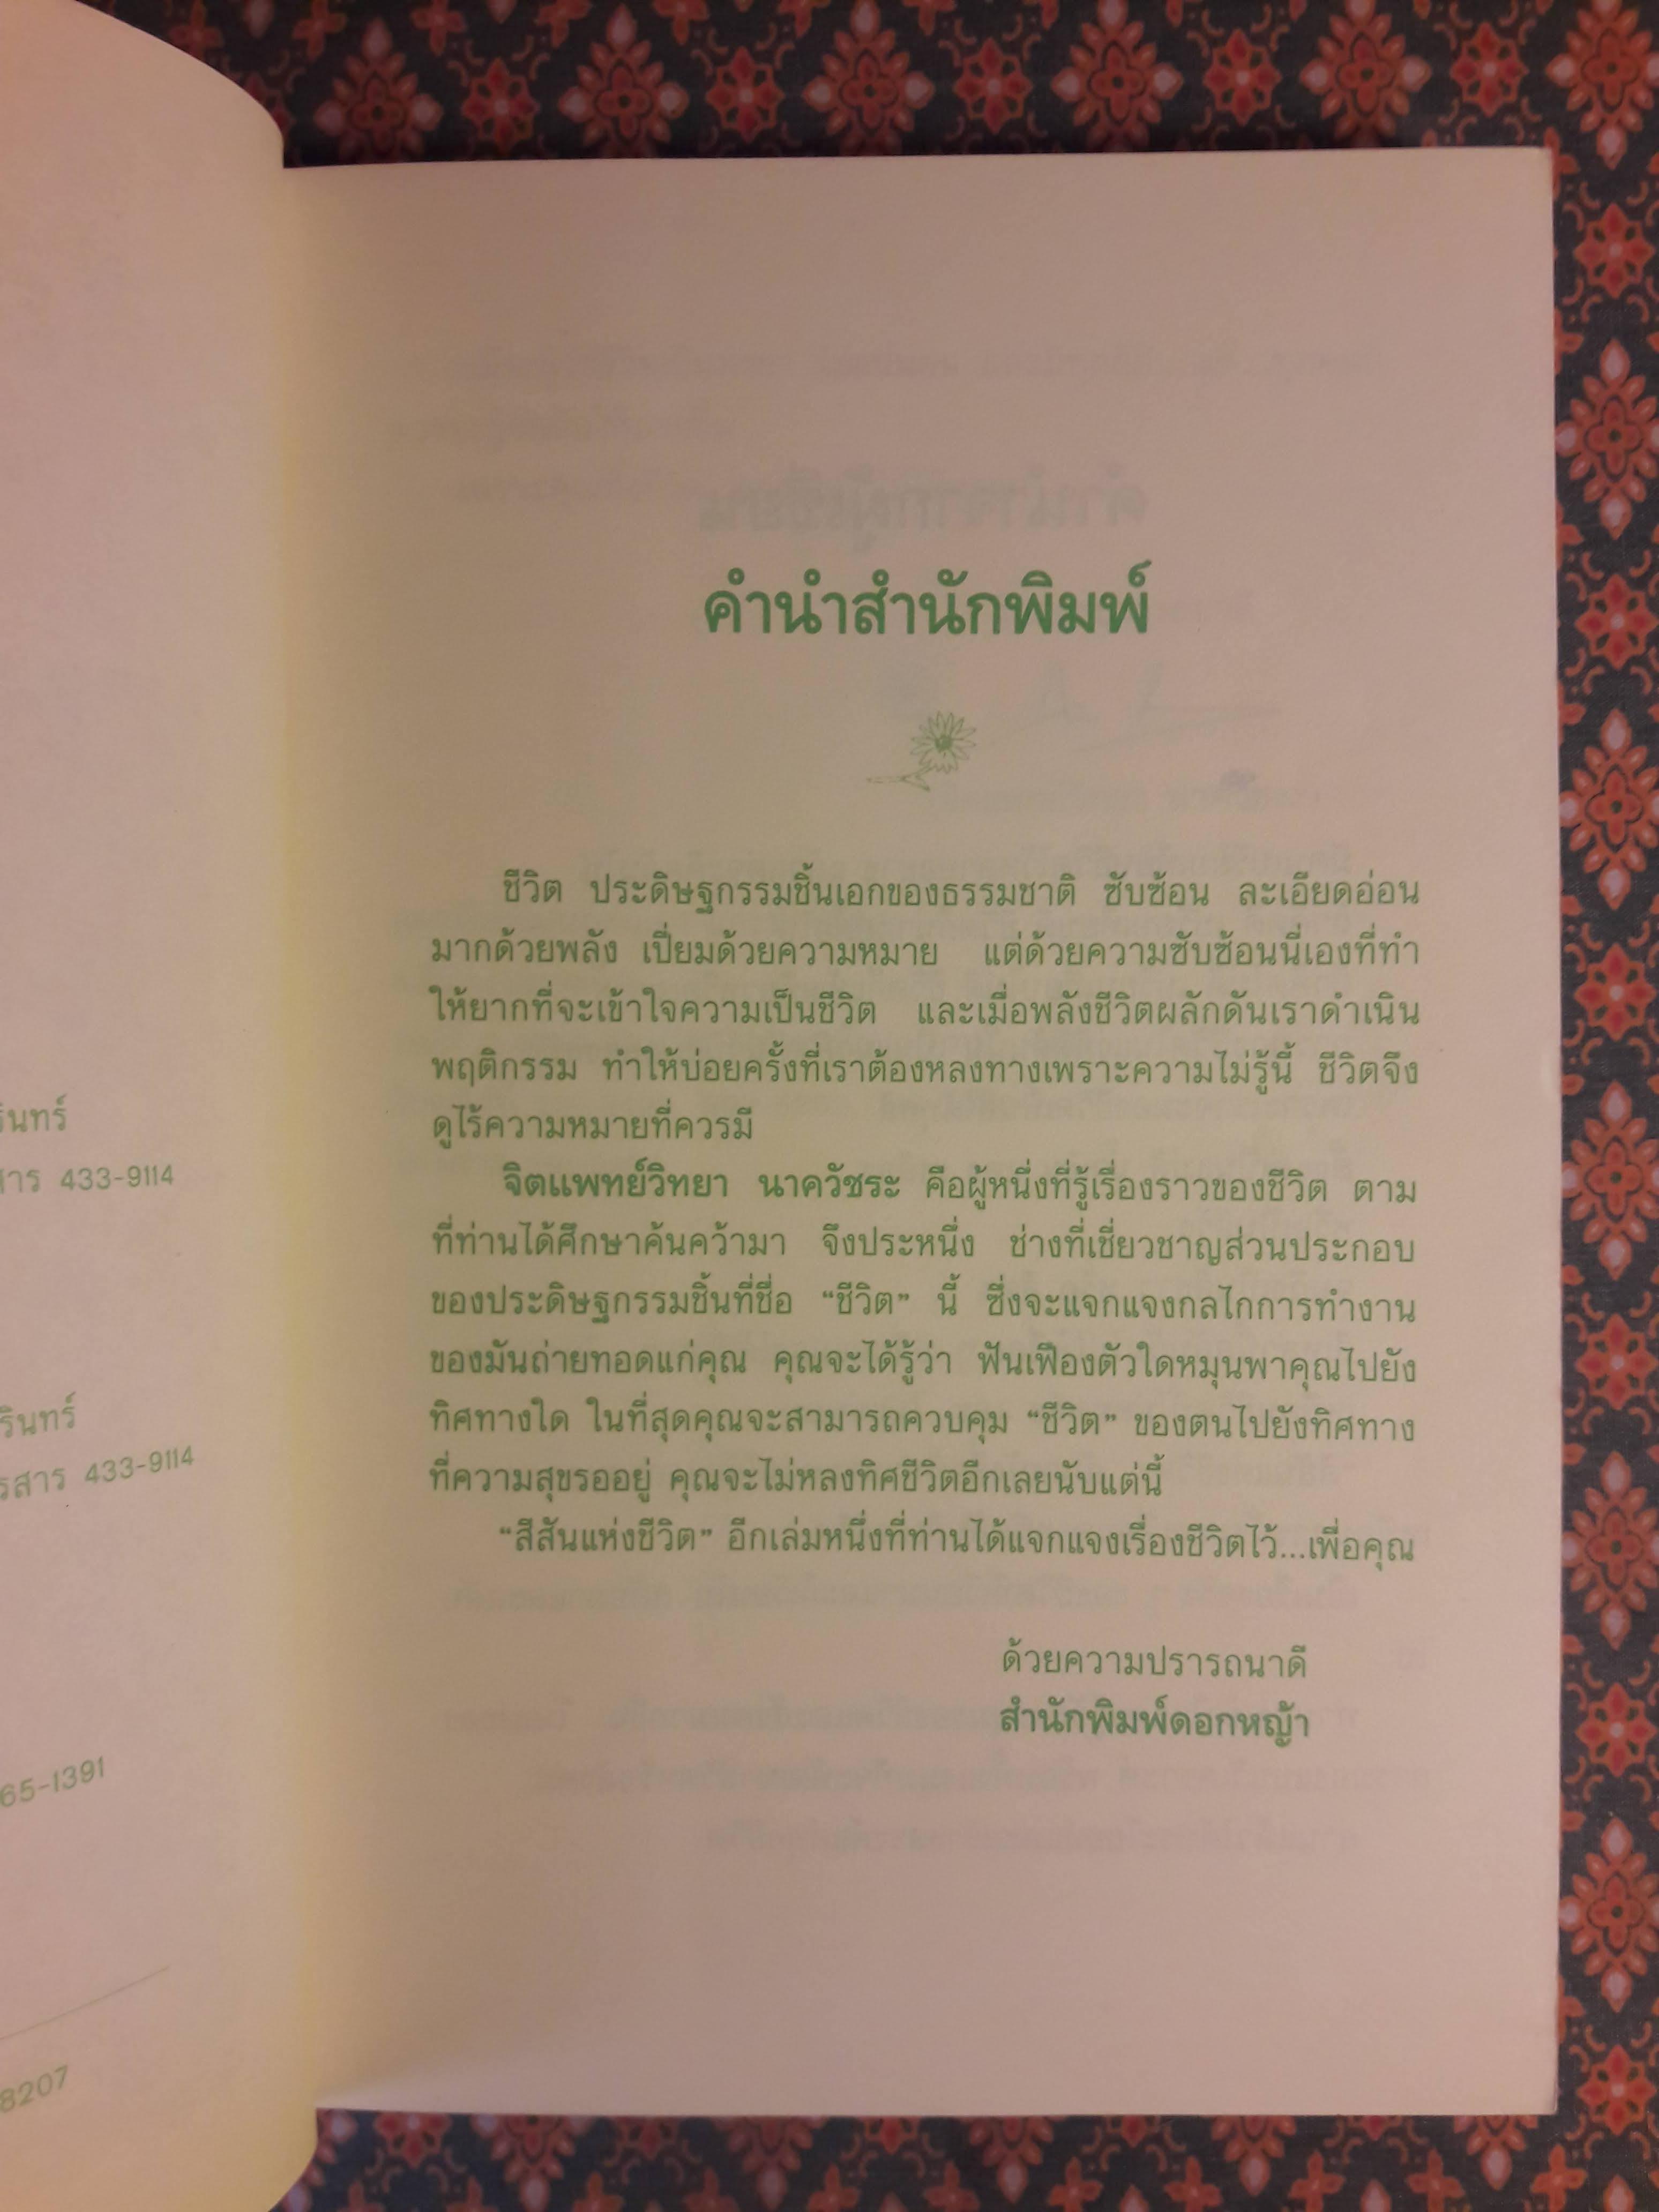 รินทร์
สาร 433-9114
รินทร์
รสาร 433-9114
65-1391
8207
คำนำสำนักพิมพ์
ชีวิต ประดิษฐกรรมชิ้นเอกของธรรมชาติ ซับซ้อน ละเอียดอ่อน
มากด้วยพลัง เปี่ยมด้วยความหมาย แต่ด้วยความซับซ้อนนี่เองที่ทำ
ให้ยากที่จะเข้าใจความเป็นชีวิต และเมื่อพลังชีวิตผลักดันเราดำเนิน
พฤติกรรม ทำให้บ่อยครั้งที่เราต้องหลงทางเพราะความไม่รู้นี้ ชีวิตจึง
ดูไร้ความหมายที่ควรมี
จิตแพทย์วิทยา นาควัชระ คือผู้หนึ่งที่รู้เรื่องราวของชีวิต ตาม
ที่ท่านได้ศึกษาค้นคว้ามา จึงประหนึ่ง ช่างที่เชี่ยวชาญส่วนประกอบ
ของประดิษฐกรรมชิ้นที่ชื่อ “ชีวิต” นี้ ซึ่งจะแจกแจงกลไกการทำงาน
ของมันถ่ายทอดแก่คุณ คุณจะได้รู้ว่า ฟันเฟืองตัวใดหมุนพาคุณไปยัง
ทิศทางใด ในที่สุดคุณจะสามารถควบคุม “ชีวิต” ของตนไปยังทิศทาง
ที่ความสุขรออยู่ คุณจะไม่หลงทิศชีวิตอีกเลยนับแต่นี้
“สีสันแห่งชีวิต” อีกเล่มหนึ่งที่ท่านได้แจกแจงเรื่องชีวิตไว้...เพื่อคุณ
ด้วยความปรารถนาดี
สำนักพิมพ์ดอกหญ้า